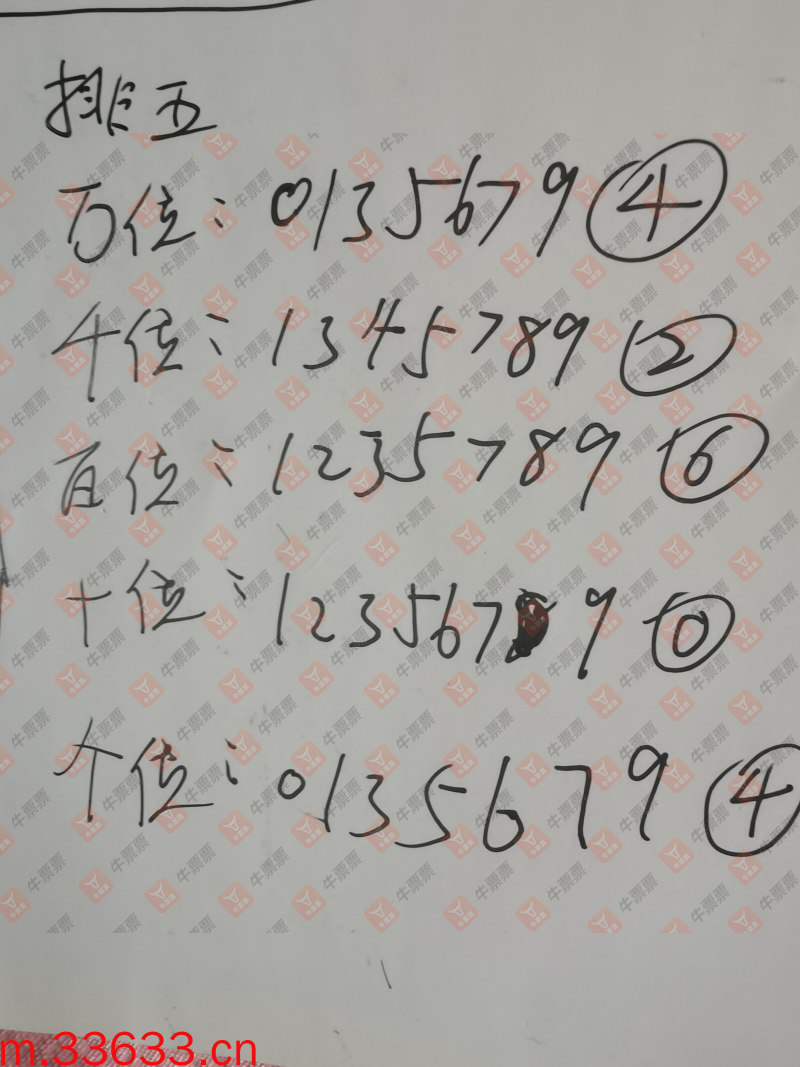 排五
万位：0135679④
千位：1345789②
百位：1235789⑥
十位：123567 9⓪
个位：0135679④
牛票票
m.33633.cn